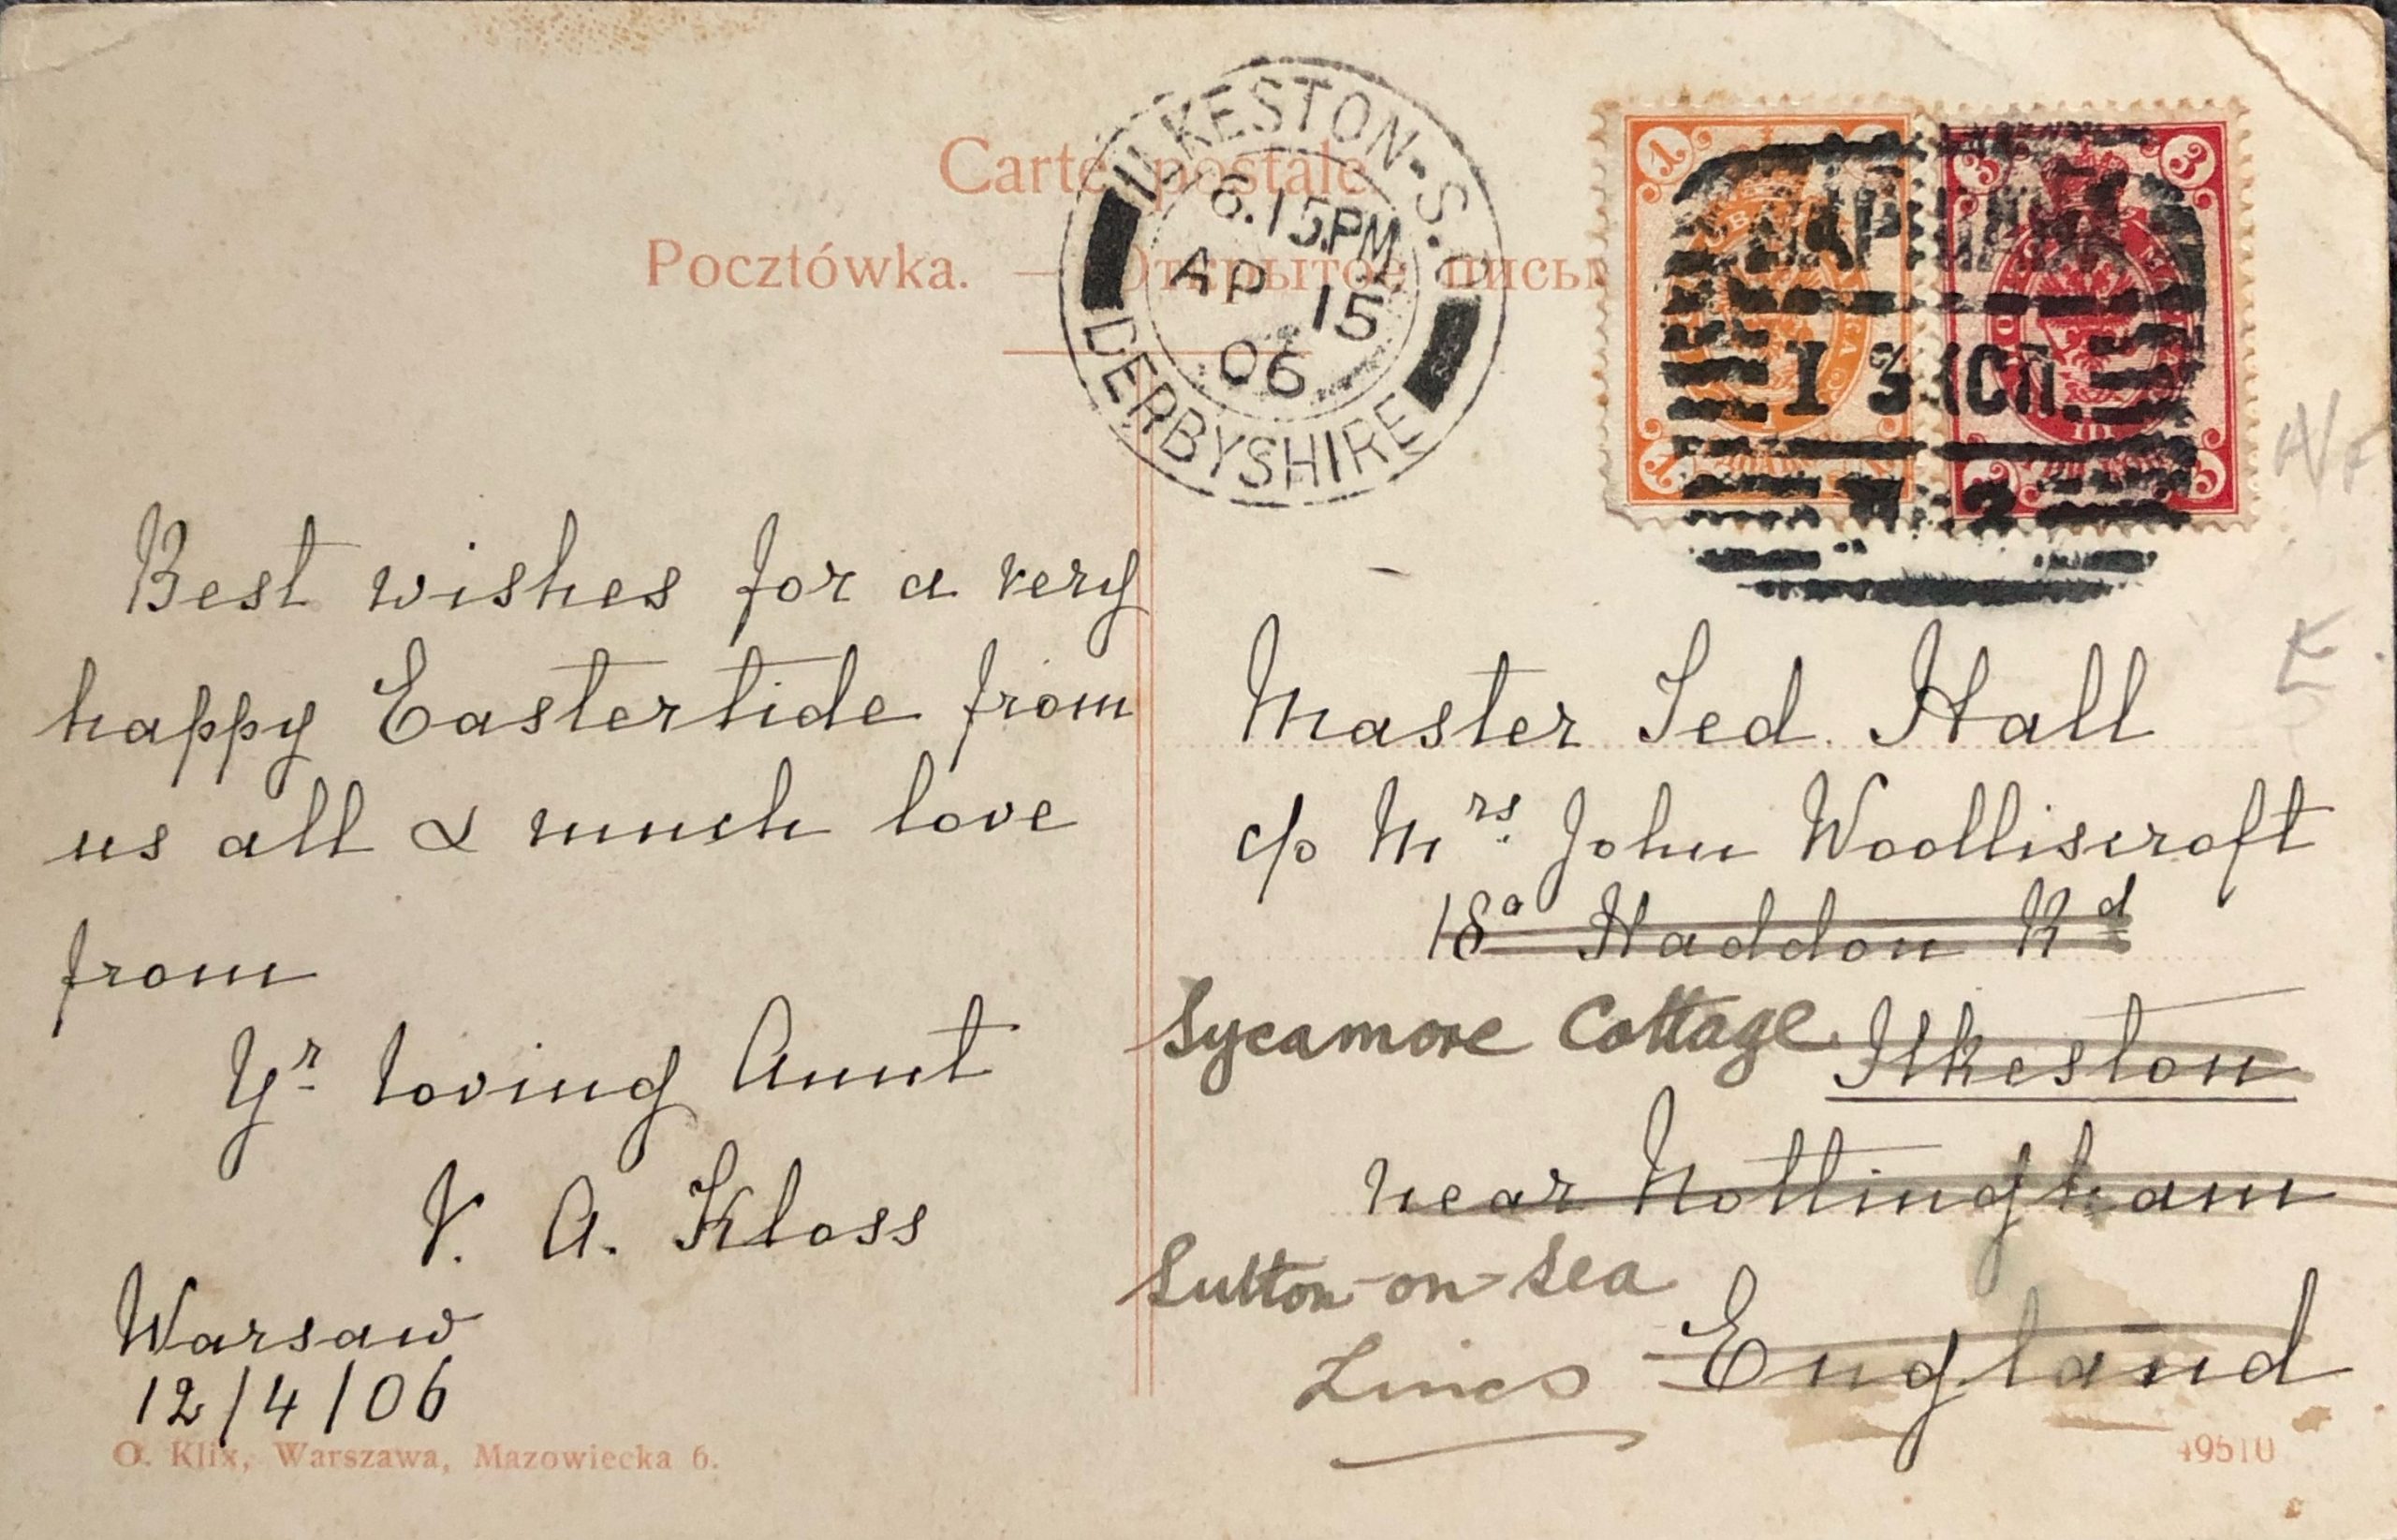 Carte postale
Pocztówka. — Открытое письм
ILKESTON-S.
6.15PM
AP 15
06
DERBYSHIRE
1 1 3 3
1 ЭКСП.
Best wishes for a very
happy Eastertide from
us all & much love
from
Yr loving Aunt
V. A. Kloss
Warsaw
12/4/06
O. Klix, Warszawa, Mazowiecka 6.
Master Ted Hall
c/o Mrs. John Woolliscroft
18a Haddon Rd
Sycamore Cottage Ilkeston
near Nottingham
Sutton-on-Sea
Lincs England
49510